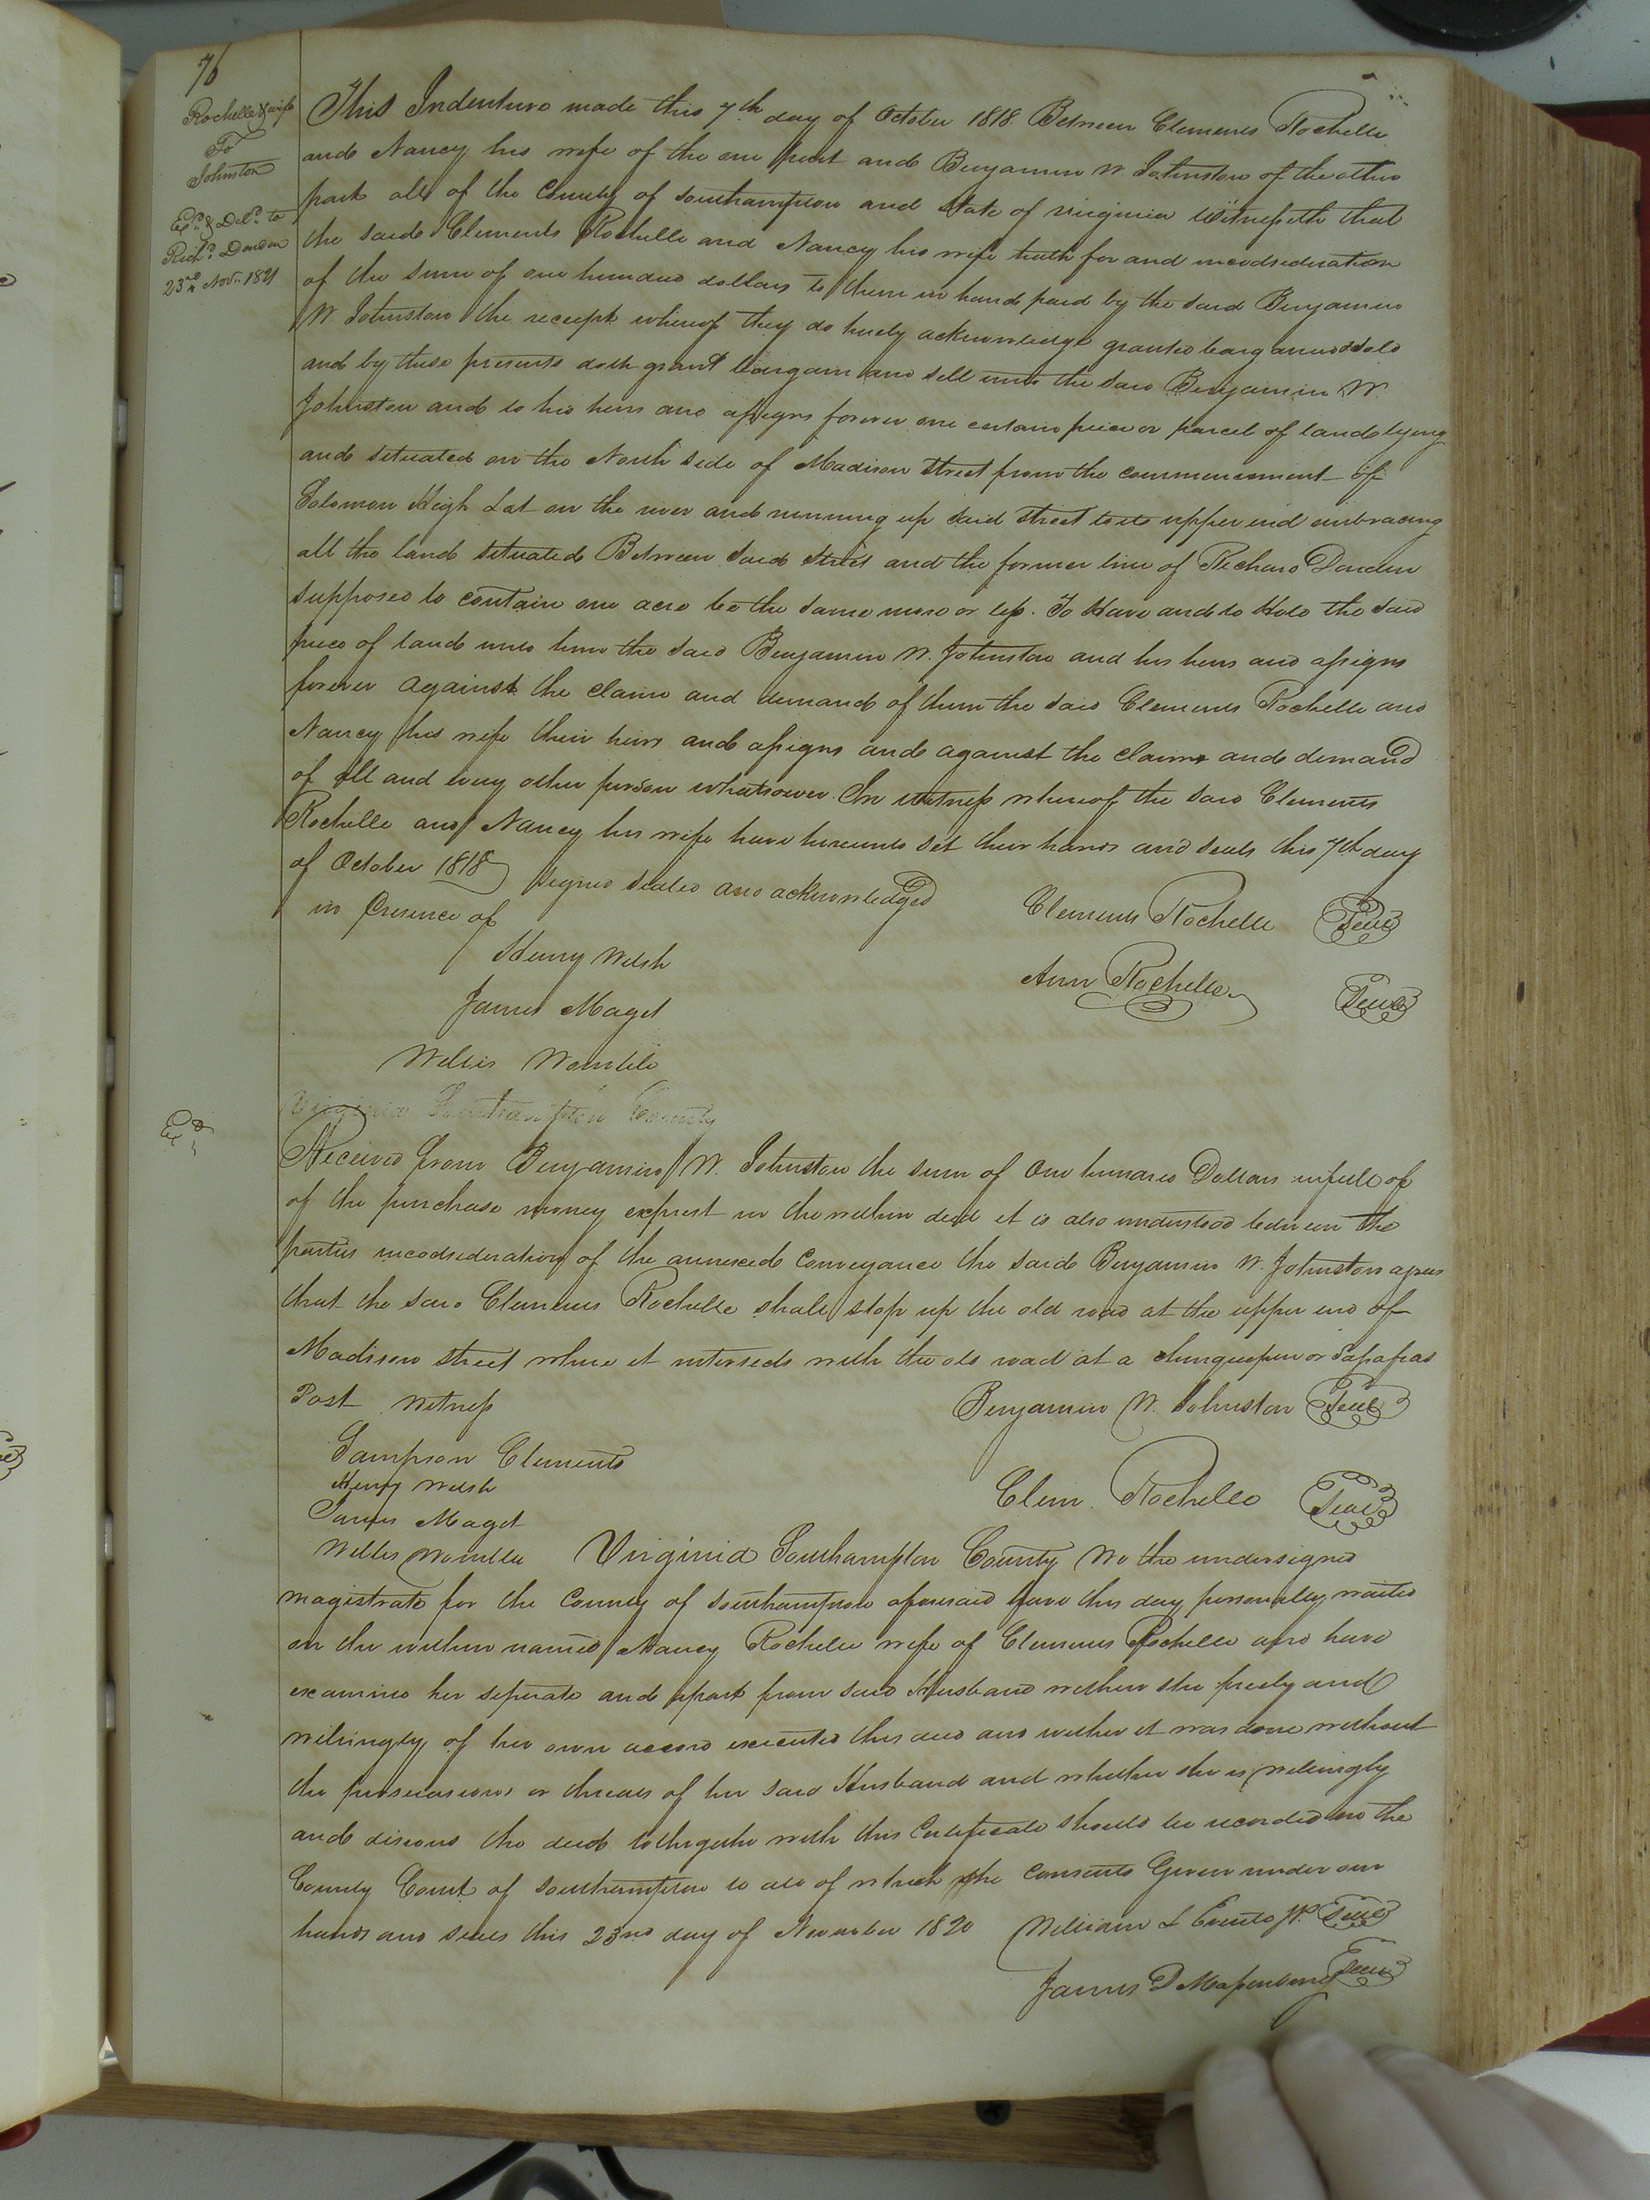 76
Rochelle & wife
To
Johnston
Exd. & Deld. to
Richd. Darden
23rd Novr. 1821
This Indenture made this 7th day of October 1818. Between Clements Rochelle
and Nancy his wife of the one part and Benjamin W. Johnston of the other
part all of the County of Southampton and State of Virginia Witnesseth that
the said Clements Rochelle and Nancy his wife hath for and incodsideration
of the sum of one hundred dollars to them in hand paid by the said Benjamin
W Johnston the receipt whereof they do hereby acknowledge granted bargained & sold
and by these presents doth grant bargain and sell unto the said Benjamin W.
Johnston and to his heirs and assigns forever one certain piece or parcel of land lying
and situated on the North side of Madison Street from the commencement of
Solomon High Lot on the river and running up said Street to its upper end embracing
all the land situated Between said Street and the former line of Richard Darden
supposed to contain one acre be the same more or less. To Have and to Hold the said
piece of land unto him the said Benjamin W. Johnston and his heirs and assigns
forever against the claim and demand of them the said Clements Rochelle and
Nancy his wife their heirs and assigns and against the claims and demand
of all and every other person whatsoever. In witness whereof the said Clements
Rochelle and Nancy his wife have hereunto set their hands and seals this 7th day
of October 1818 signed sealed and acknowledged
in Presence of
Clements Rochelle Seal
Henry Welsh
Ann Rochelle Seal
James Maget
Willis Womble
Virginia Southampton County
Exd.
Received from Benjamin W. Johnston the sum of One hundred Dollars infull of
of the purchase money exprest in the within deed it is also understood between the
parties incodsideration of the annexed Conveyance the said Benjamin W. Johnston agrees
that the said Clements Rochelle shall stop up the old road at the upper end of
Madison Street where it interseds with the old road at a chinquepin or Sasafras
Post Witness
Benjamin W. Johnston Seal
Sampson Clements
Henry Welsh
Clem. Rochelle Seal
James Maget
Willis Womble Virginia Southampton County We the undersigned
magistrate for the County of Southampton aforesaid have this day personally waited
on the within named Nancy Rochelle wife of Clements Rochelle and have
examined her seperate and apart from said Husband wether she freely and
willingly of her own accord executed this deed and wether it was done without
the persuasions or threats of her said Husband and whether she is willingly
and disirous the deed tothgether with this Certificate should be recorded in the
County Court of Southampton to all of which she consents Given under our
hands and seals this 23rd day of November 1820 William L Everitt JP. Seal
James D Massenburg Seal